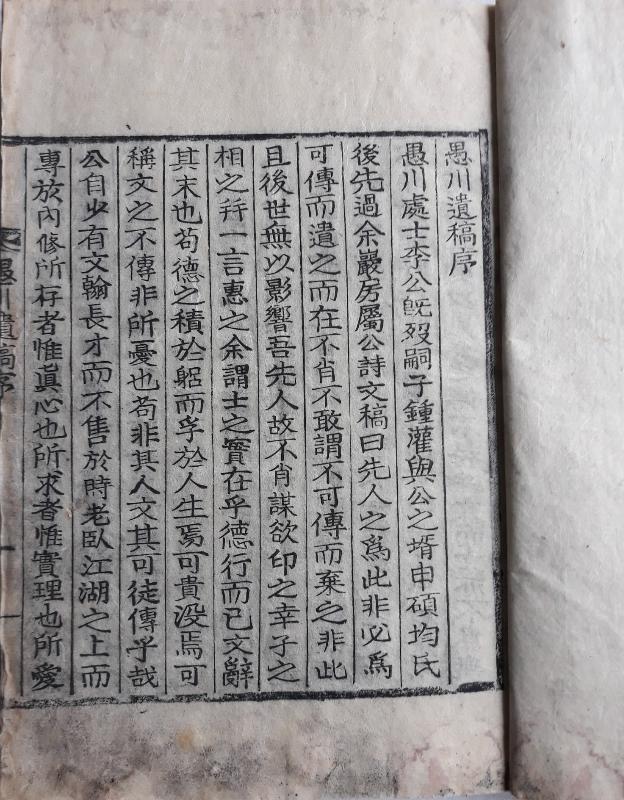 愚川遺稿序
愚川處士李公旣歿嗣子鍾灌與公之壻申碩均氏
後先過余巖房屬公詩文稿曰先人之爲此非必爲
可傳而遺之而在不肖不敢謂不可傳而棄之非此
且後世無以影響吾先人故不肖謀欲印之幸子之
相之幷一言惠之余謂士之實在乎德行而已文辭
其末也苟德之積於躳而孚於人生焉可貴没焉可
稱文之不傳非所憂也苟非其人文其可徒傳乎哉
公自少有文翰長才而不售於時老臥江湖之上而
專放內修所存者惟眞心也所求者惟實理也所愛
愚川遺稿序
一